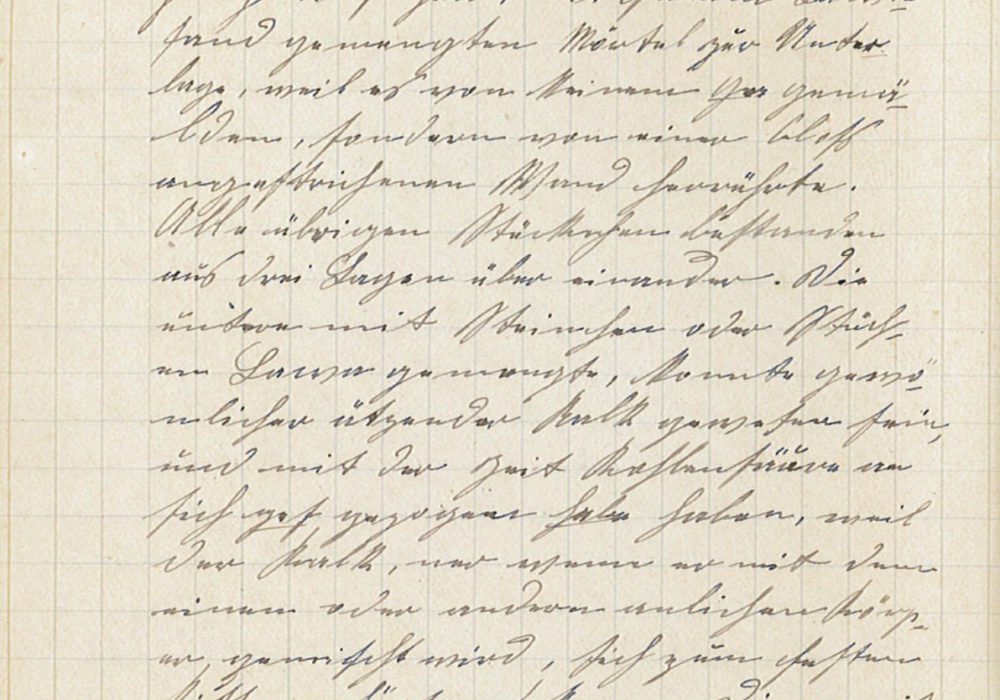 sand gemengten Mörtel zur Unter
lage, weil es von keinem Ge gemä
lden, sondern von einer bloß
angestrichenen Wand herrührte.
Alle übrigen Stückchen bestanden
aus drei Lagen über einander. Die
untere mit Steinchen oder Stück-
en Lawa gemengte, konnte gewö
nlicher ätzender Kalk gewesen sein,
und mit der Zeit Kohlensäure an
sich gez gezogen habe haben, weil
der Kalk, nur wenn er mit dem
einen oder andern anlichen Körp-
er, gemischt wird, sich zum festen